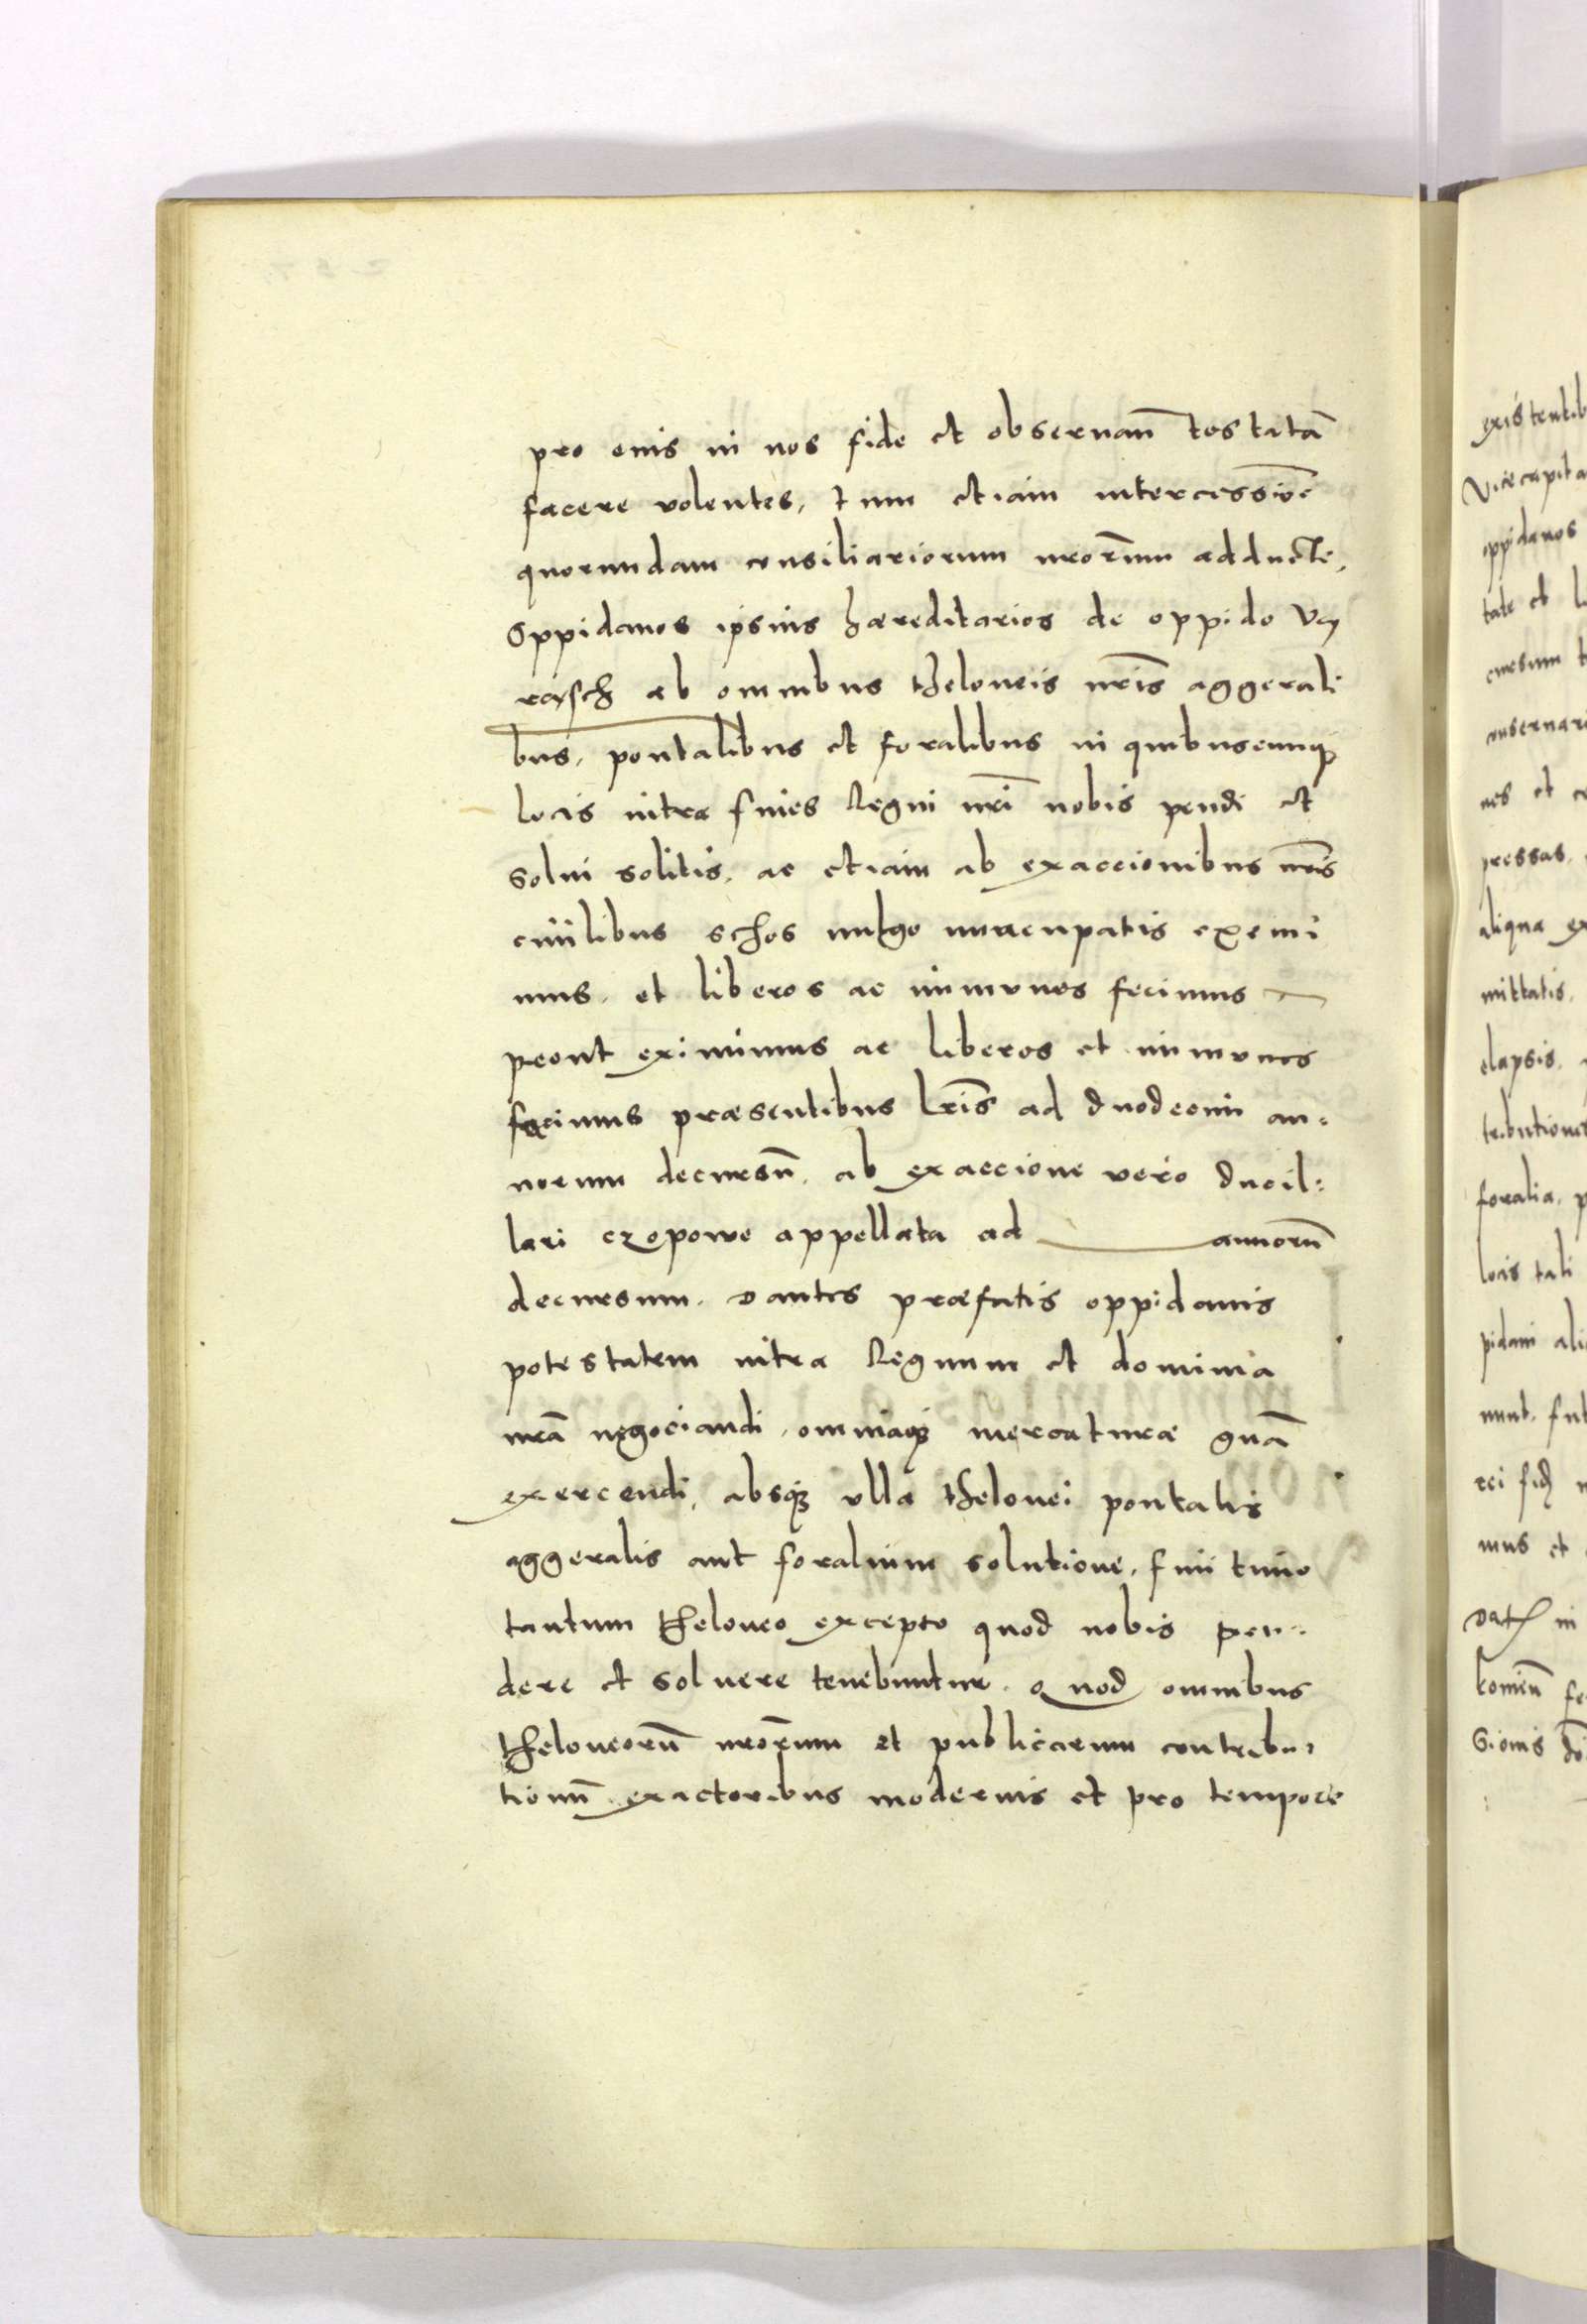 pro eius in nos fide et obseruan̄ testatā
facere volentes, tum etiam intercessiōe
quorundam consiliariorum nr̄orum adducte,
Oppidanos ipsius hæreditarios de oppido Vy
rasch ab omnibus theloneis nr̄is aggerali
bus, pontalibus et foralibus in quibuscunq3
locis intra fines Regni nr̄i nobis pendi et
solui solitis, ac etiam ab exaccionibus nr̄is
ciuilibus schos uulgo nuncupatis eximi
mus, et liberos ac immunes fecimus
prout eximimus ac liberos et immunes
facimus præsentibus lr̄is ad duodecim an:
norum decursū, ab exaccione vero ducil:
lari czopowe appellata ad annorū
decursum. Dantes præfatis oppidanis
potestatem intra Regnum et dominia
nr̄a negociandi, omniaq3 mercaturæ gn̄a
exercendi, absq3 vlla thelonei pontalis
aggeralis aut foralium solutione, finitimo
tantum theloneo excepto quod nobis pen:
dere et soluere tenebuntur. Quod omnibus
theloneorū nr̄orum et publicarum contribu:
tionū exactoribus modernis et pro tempore
existentib
Vicecapita
oppidanos
tate et l
cursum t
conseruari
nes et c
pressas,
aliqua ex
mittatis,
elapsis,
tributiones
foralia, p
locis tali
pidani ali
nunt,
rei fid
mus et
Dat in
tomien̄ fe
Gionis